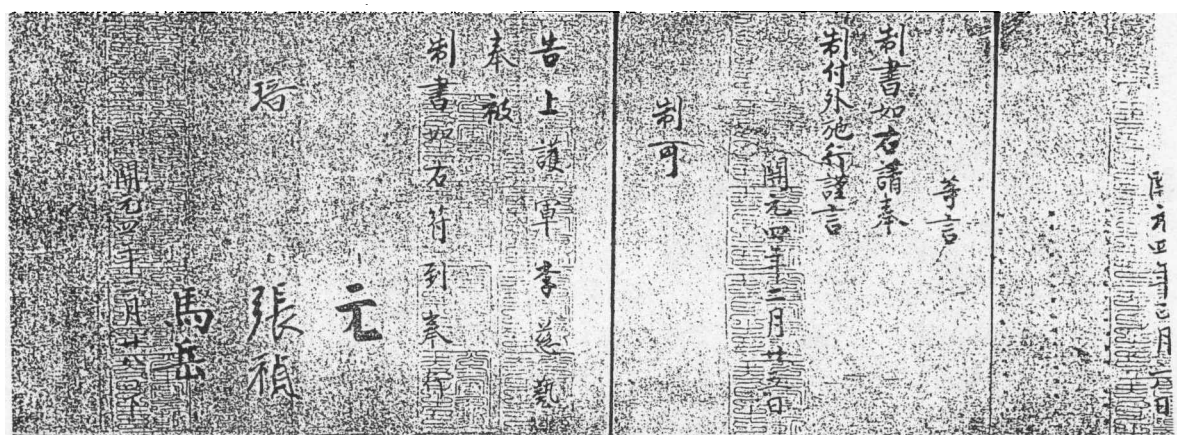 開元四年月日
等言
制書如右請奉
制付外施行謹言
開元四年二月廿五日
制可
告上護軍李慈藝
奉被
制書如右符到奉行
元
張禎
馬岳
開元四年二月廿八日下